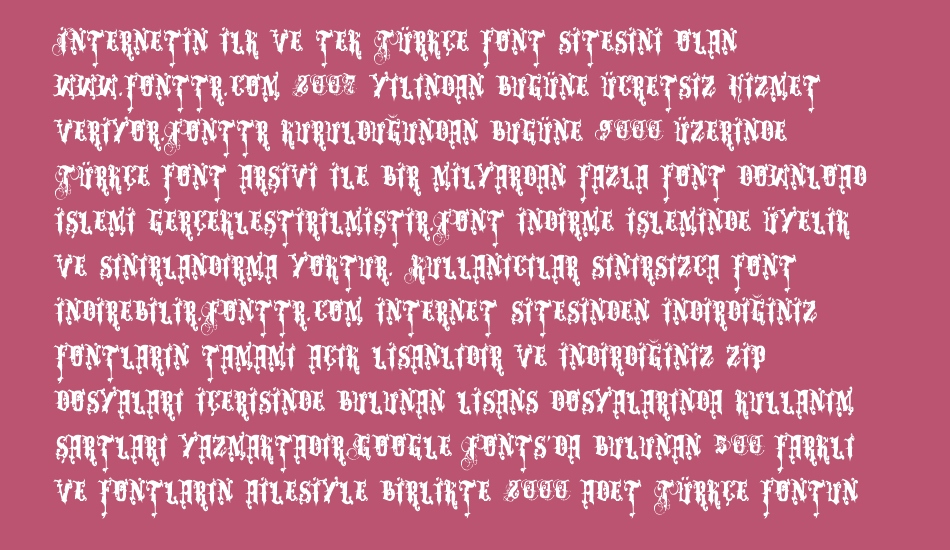 İNTERNETİN İLK VE TEK TÜRKÇE FONT SİTESİNİ OLAN
WWW.FONTTR.COM 2007 YILINDAN BUGÜNE ÜCRETSİZ HİZMET
VERİYOR.FONTTR KURULDUĞUNDAN BUGÜNE 9000 ÜZERİNDE
TÜRKÇE FONT ARŞİVİ İLE BİR MİLYARDAN FAZLA FONT DOWNLOAD
İŞLEMİ GERÇEKLEŞTİRİLMİŞTİR.FONT İNDİRME İŞLEMİNDE ÜYELİK
VE SINIRLANDIRMA YOKTUR. KULLANICILAR SINIRSIZCA FONT
İNDİREBİLİR.FONTTR.COM İNTERNET SİTESİNDEN İNDİRDİĞİNİZ
FONTLARIN TAMAMI AÇIK LİSANLIDIR VE İNDİRDİĞİNİZ ZİP
DOSYALARI İÇERİSİNDE BULUNAN LİSANS DOSYALARINDA KULLANIM
ŞARTLARI YAZMAKTADIR.GOOGLE FONTS'DA BULUNAN 500 FARKLI
VE FONTLARIN AİLESİYLE BİRLİKTE 2000 ADET TÜRKÇE FONTUN